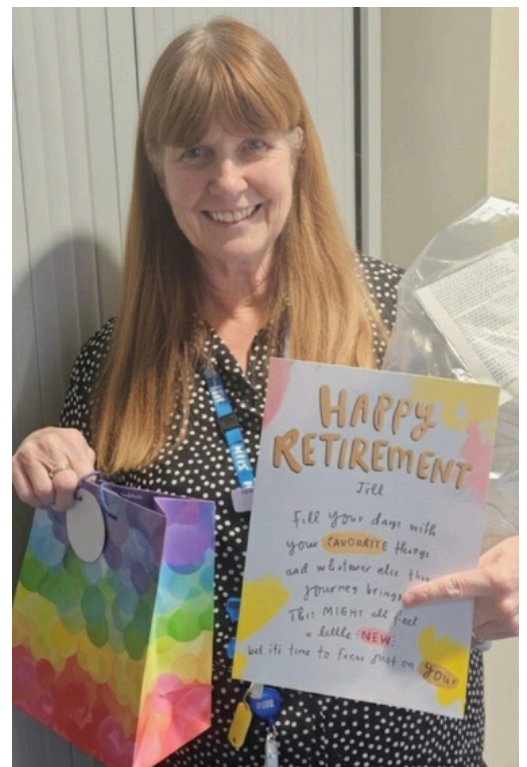 HAPPY
RETIREMENT
Jill
Fill your days with
your FAVOURITE things
and whatever else the
journey brings
This MIGHT all feel
a little NEW
but it's time to focus just on YOU!
NHS